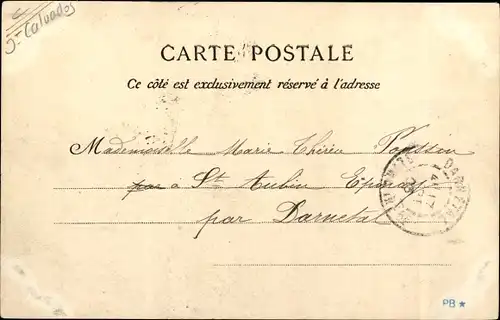 Calvados
CARTE POSTALE
Ce côté est exclusivement réservé à l'adresse
Mademoiselle Marie Thérèse Poussin
par a St Aubin Epinay
par Darnetal
DARNETAL
PB ★